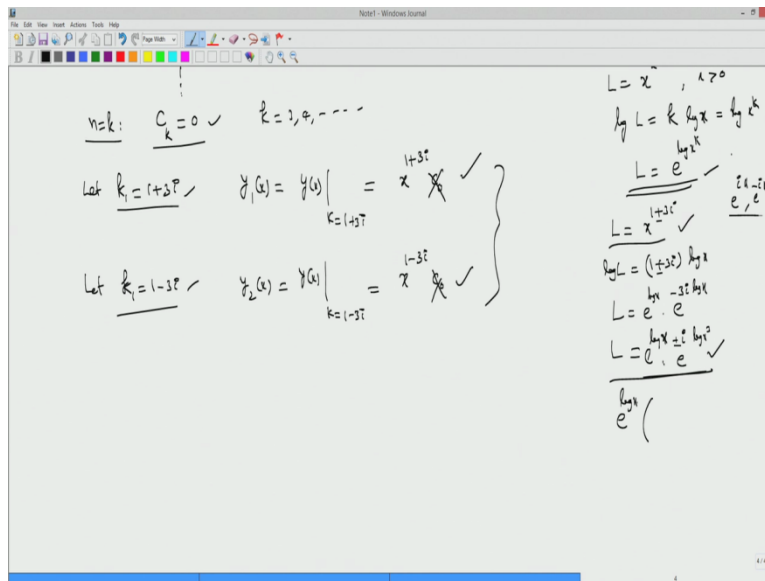 Note1 - Windows Journal
File Edit View Insert Actions Tools Help
Page Width
B I
n=k: C_k = 0 ✓ k = 3, 4, - - - -
Let k₁ = 1+3i ✓ y₁(x) = y(x)|_{k=1+3i} = x^{1+3i} ✓
Let k₁ = 1-3i ✓ y₂(x) = y(x)|_{k=1-3i} = x^{1-3i} ✓
L = x , x>0
log L = k log x = log x^k
L = e^{log x^k} ✓
e^{ix}, e^{-ix}
L = x^{1±3i} ✓
log L = (1±3i) log x
L = e^{log x} . e^{-3i log x}
L = e^{log x} . e^{±i log x³} ✓
e^{log x} (